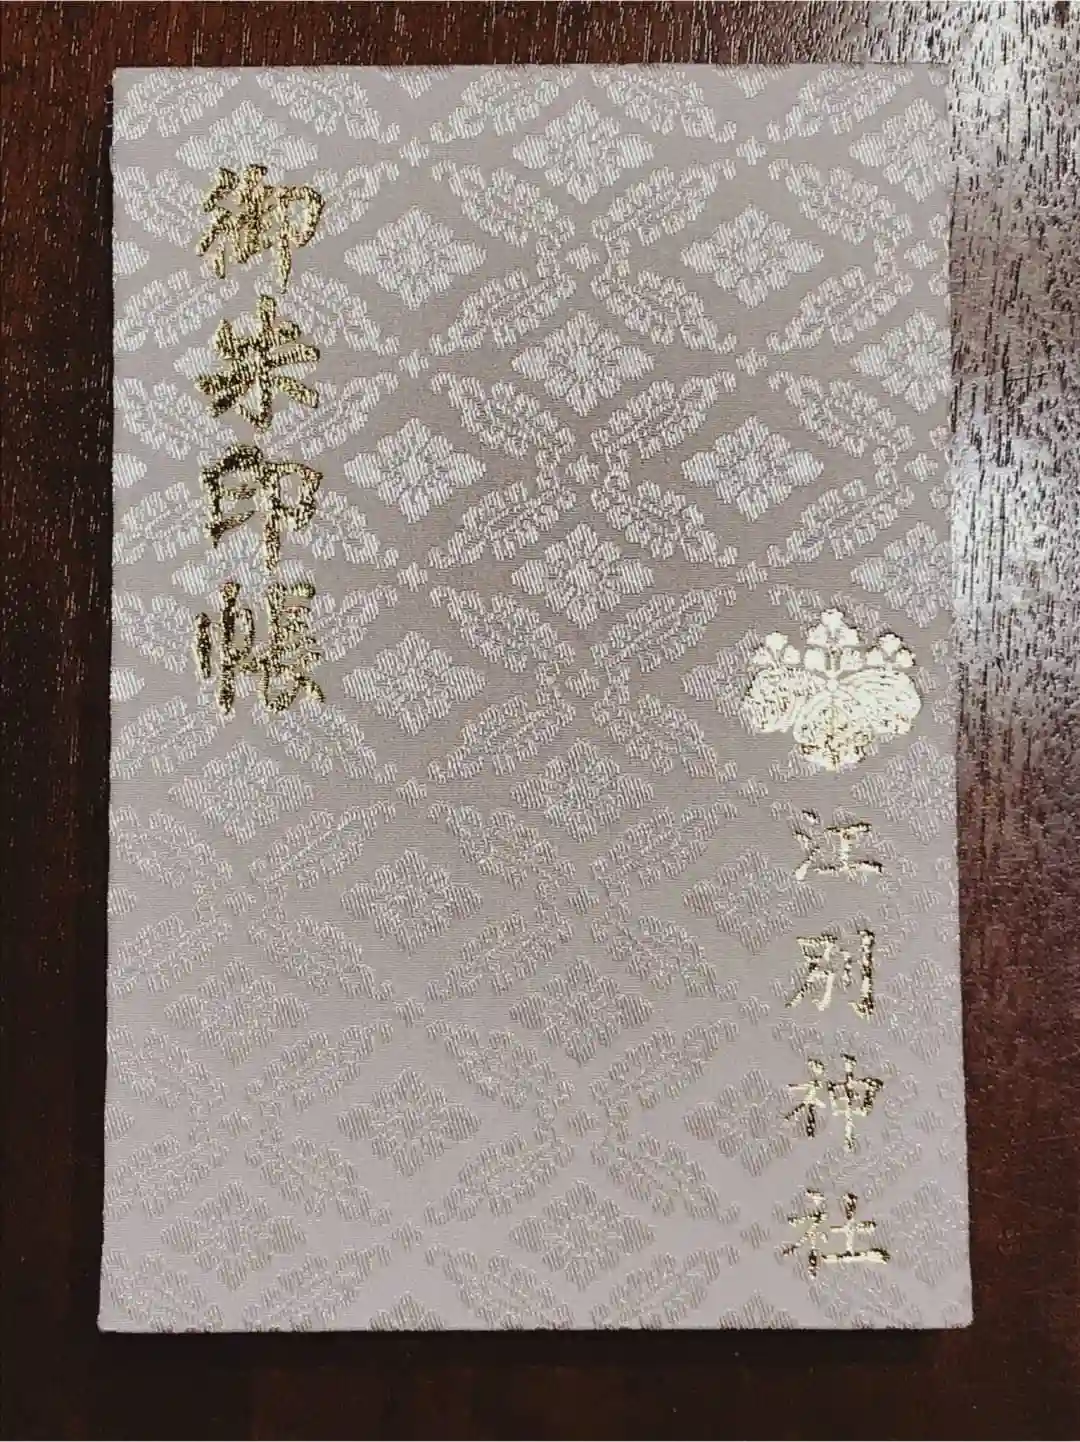 御朱印帳
江別神社